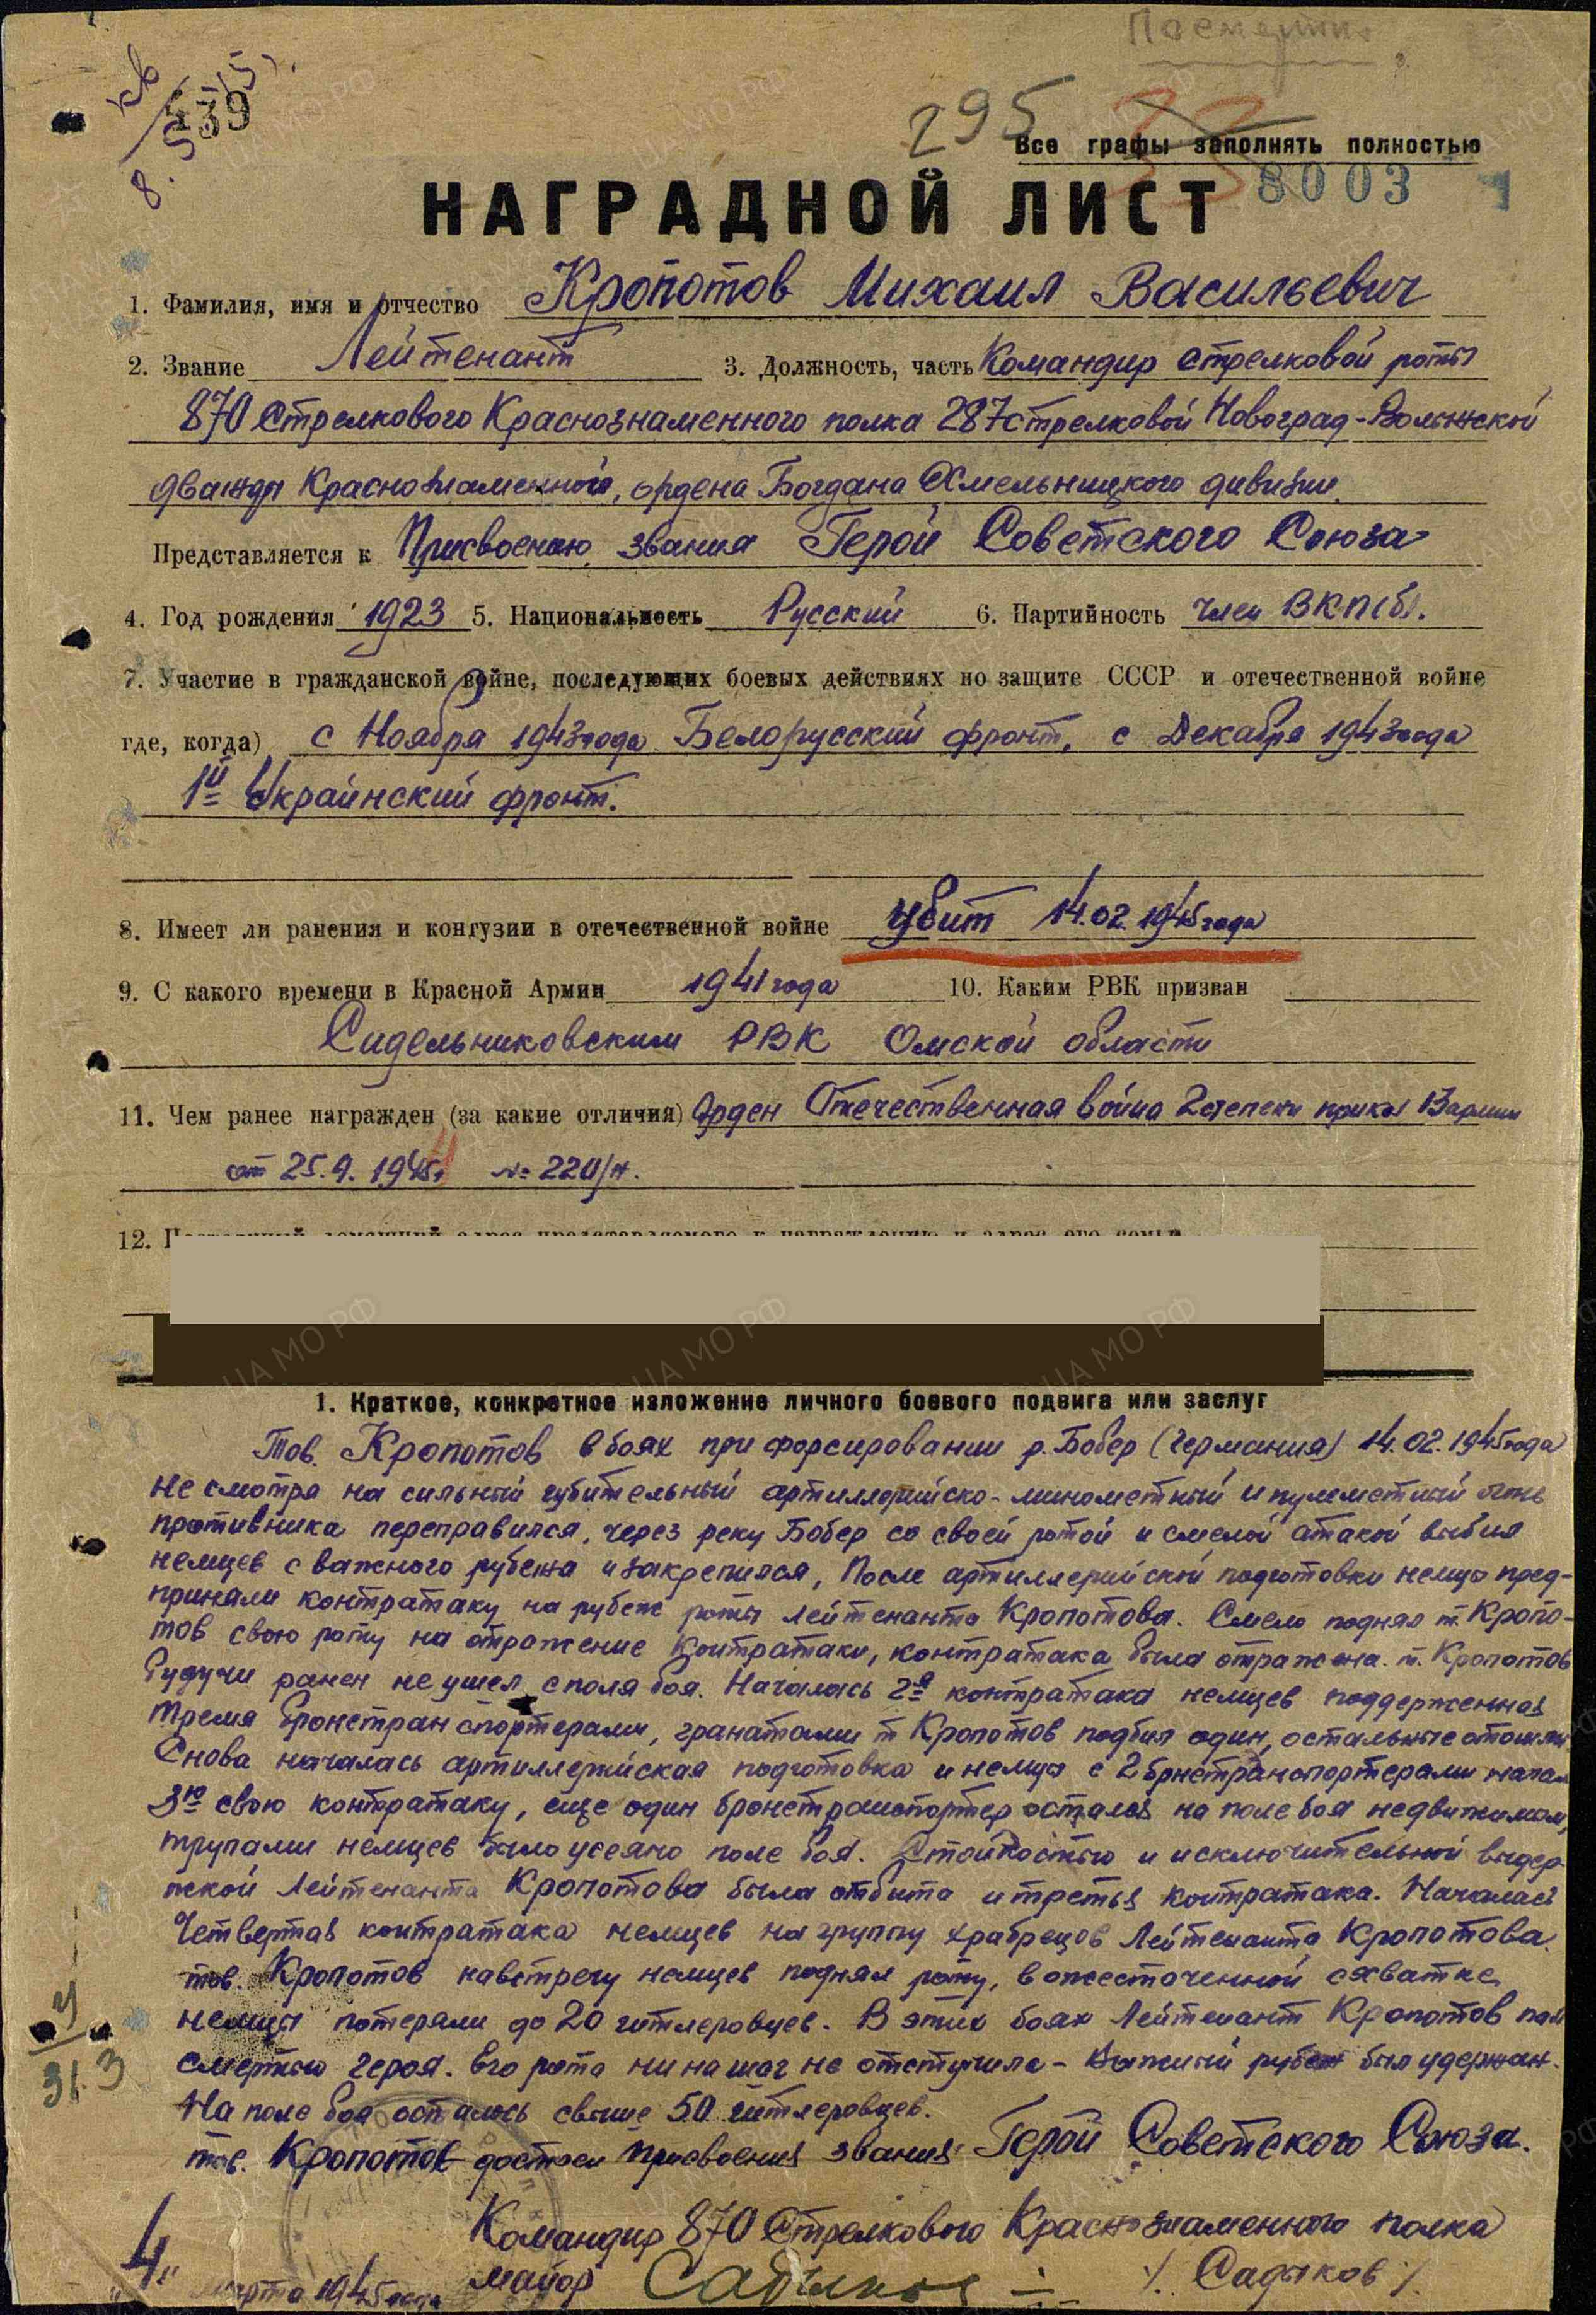 Посмертно.
439
295
33
Все графы заполнять полностью
8003
1
НАГРАДНОЙ ЛИСТ
1. Фамилия, имя и отчество Кропотов Михаил Васильевич
2. Звание Лейтенант 3. Должность, часть Командир стрелковой роты
870 Стрелкового Краснознаменного полка 287 стрелковой Новоград-Волынской
дважды Краснознаменной, ордена Богдана Хмельницкого дивизии.
Представляется к Присвоению звания Герой Советского Союза
4. Год рождения 1923 5. Национальность Русский 6. Партийность член ВКП(б).
7. Участие в гражданской войне, последующих боевых действиях по защите СССР и отечественной войне
где, когда) с Ноября 1943 года Белорусский фронт, с Декабря 1943 года
1й Украинский фронт.
8. Имеет ли ранения и контузии в отечественной войне убит 14.02.1945 года
9. С какого времени в Красной Армии 1941 года 10. Каким РВК призван
Сидельниковским РВК Омской области
11. Чем ранее награжден (за какие отличия) Орден Отечественная война 2 степени приказ 13 армии
от 25.9.1945г № 220/н.
12.
1. Краткое, конкретное изложение личного боевого подвига или заслуг
Тов. Кропотов в боях при форсировании р. Бобер (Германия) 14.02.1945 года
не смотря на сильный губительный артиллерийско-минометный и пулеметный огонь
противника переправился, через реку Бобер со своей ротой и смелой атакой выбил
немцев с важного рубежа и закрепился, После артиллерийской подготовки немцы пред-
приняли контратаку на рубеж роты лейтенанта Кропотова. Смело поднял т. Кропо-
тов свою роту на отражение контратаки, контратака была отражена. т. Кропотов
будучи ранен не ушел с поля боя. Началась 2я контратака немцев поддержанная
тремя бронетранспортерами, гранатами т Кропотов подбил один, остальные отошли.
Снова началась артиллерийская подготовка и немцы с 2 бронетранспортерами начали
3ю свою контратаку, еще один бронетранспортер остался на поле боя недвижимом,
трупами немцев было усеяно поле боя. Стойкостью и исключительной выдер-
жкой Лейтенанта Кропотова была отбита и третья контратака. Началась
Четвертая контратака немцев на группу храбрецов Лейтенанта Кропотова.
тов. Кропотов навстречу немцев поднял роту, в ожесточенной схватке
немцы потеряли до 20 гитлеровцев. В этих боях Лейтенант Кропотов пал
смертью героя. Его рота ни на шаг не отступила - важный рубеж был удержан.
На поле боя осталось свыше 50 гитлеровцев.
тов. Кропотов достоин присвоения звания Герой Советского Союза.
31.3
Командир 870 Стрелкового Краснознаменного полка
майор /Садыков/.
"4" марта 1945 года
ЦА МО РФ